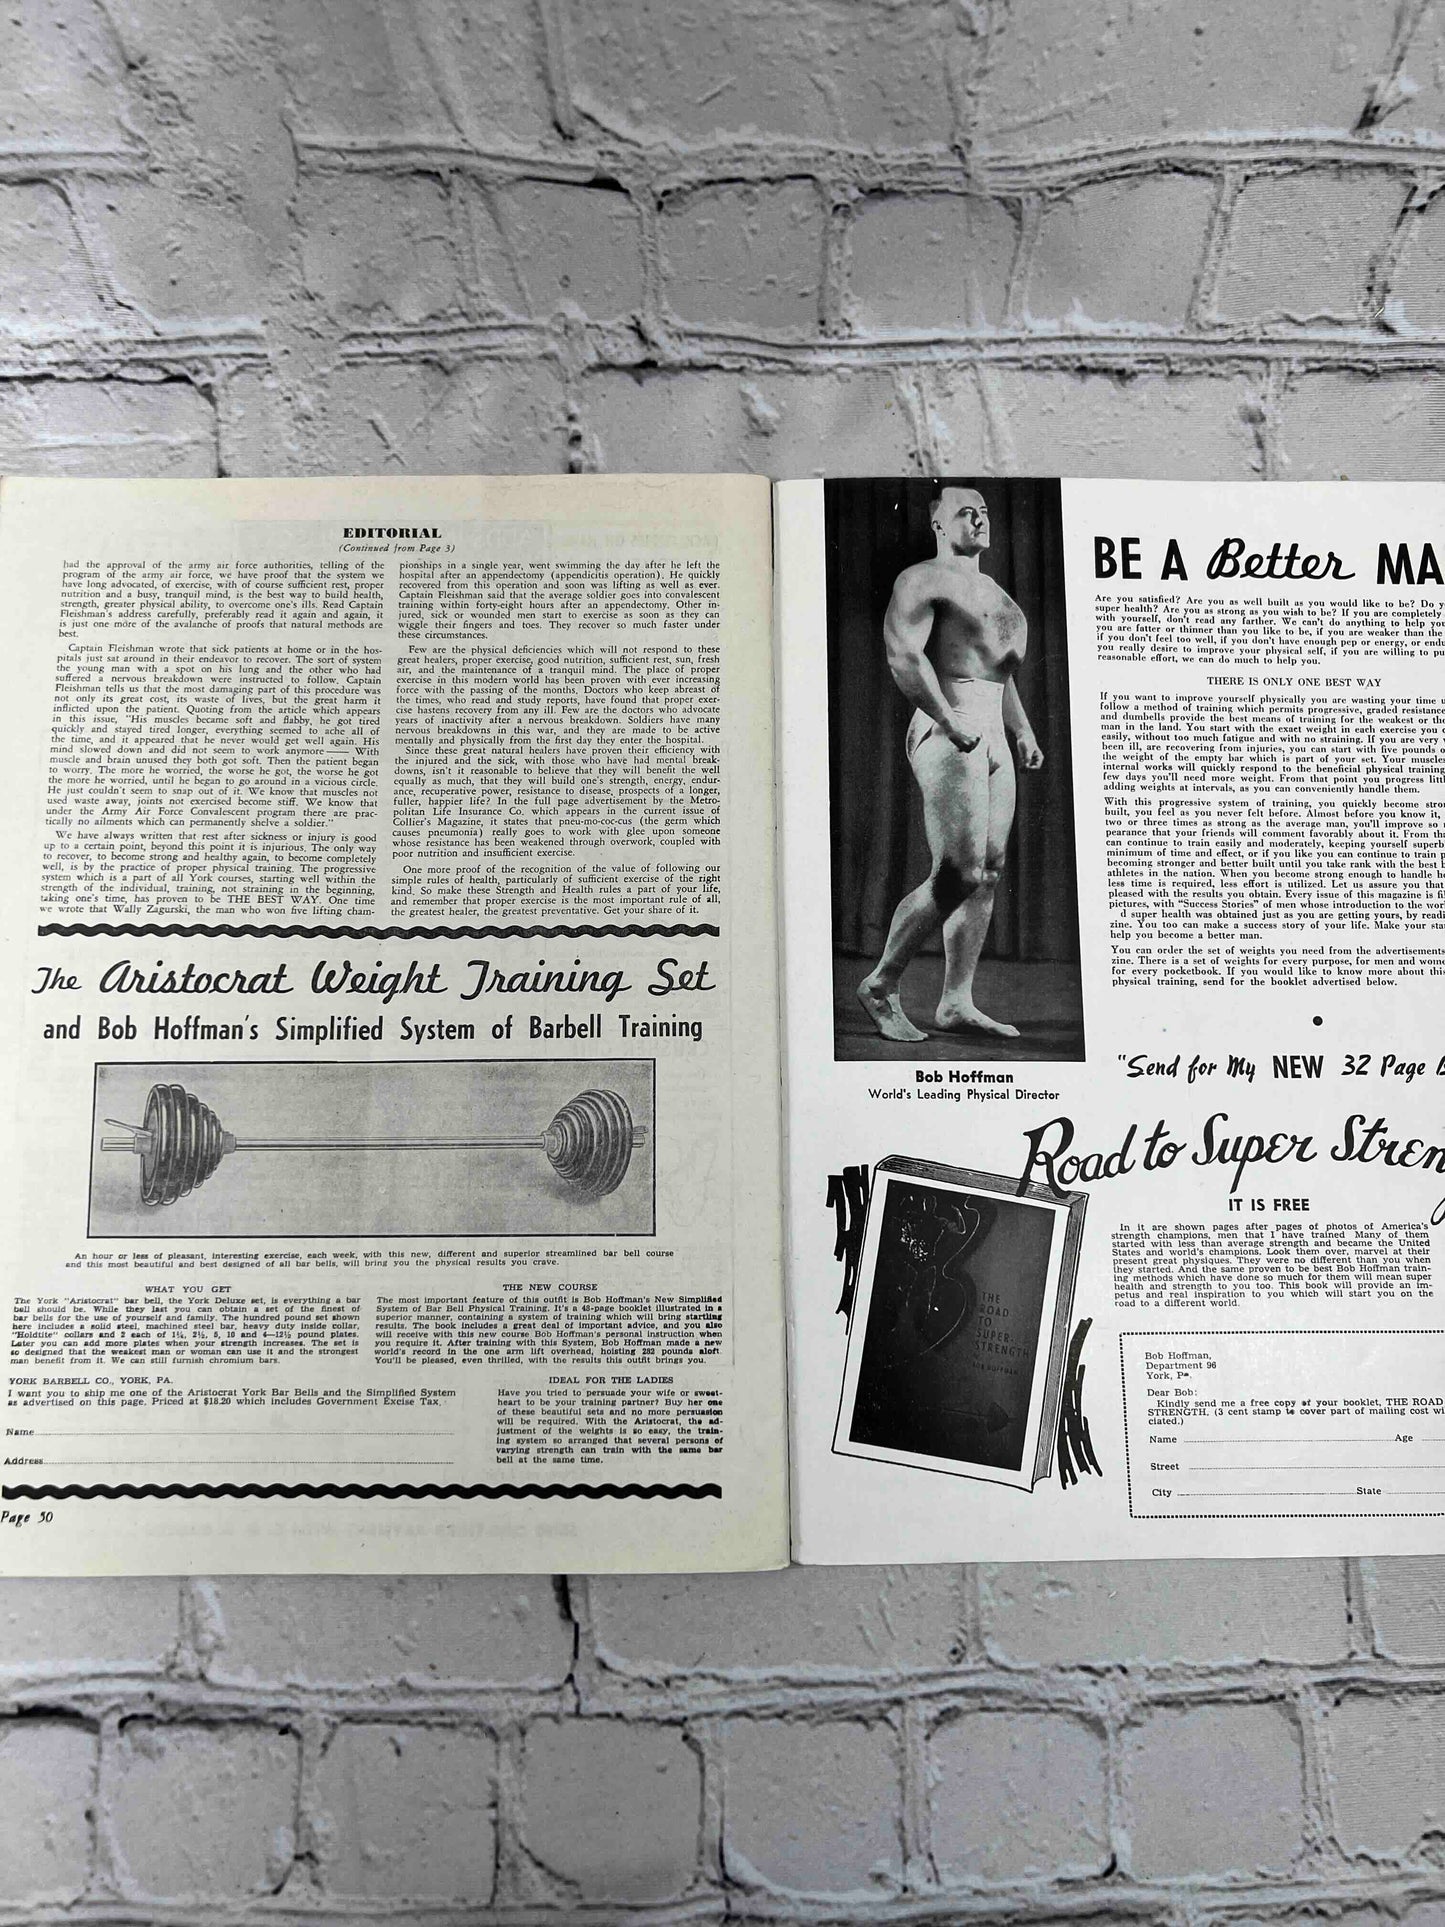 EDITORIAL
(Continued from Page 3)
had the approval of the army air force authorities, telling of the
program of the army air force, we have proof that the system we
have long advocated, of exercise, with of course sufficient rest, proper
nutrition and a busy, tranquil mind, is the best way to build health,
strength, greater physical ability, to overcome one's ills. Read Captain
Fleishman's address carefully, preferably read it again and again, it
is just one more of the avalanche of proofs that natural methods are
best.
Captain Fleishman wrote that sick patients at home or in the hos-
pitals just sat around in their endeavor to recover. The sort of system
the young man with a spot on his lung and the other who had
suffered a nervous breakdown were instructed to follow. Captain
Fleishman tells us that the most damaging part of this procedure was
not only its great cost, its waste of lives, but the great harm it
inflicted upon the patient. Quoting from the article which appears
in this issue, "His muscles became soft and flabby, he got tired
quickly and stayed tired longer, everything seemed to ache all of
the time, and it appeared that he never would get well again. His
mind slowed down and did not seem to work anymore—— With
muscle and brain unused they both got soft. Then the patient began
to worry. The more he worried, the worse he got, the worse he got
the more he worried, until he began to go around in a vicious circle.
He just couldn't seem to snap out of it. We know that muscles not
used waste away, joints not exercised become stiff. We know that
under the Army Air Force Convalescent program there are prac-
tically no ailments which can permanently shelve a soldier."
We have always written that rest after sickness or injury is good
up to a certain point, beyond this point it is injurious. The only way
to recover, to become strong and healthy again, to become completely
well, is by the practice of proper physical training. The progressive
system which is a part of all York courses, starting well within the
strength of the individual, training, not straining in the beginning,
taking one's time, has proven to be THE BEST WAY. One time
we wrote that Wally Zagurski, the man who won five lifting cham-
pionships in a single year, went swimming the day after he left the
hospital after an appendectomy (appendicitis operation). He quickly
recovered from this operation and soon was lifting as well as ever.
Captain Fleishman said that the average soldier goes into convalescent
training within forty-eight hours after an appendectomy. Other in-
jured, sick or wounded men start to exercise as soon as they can
wiggle their fingers and toes. They recover so much faster under
these circumstances.
Few are the physical deficiencies which will not respond to these
great healers, proper exercise, good nutrition, sufficient rest, sun, fresh
air, and the maintenance of a tranquil mind. The place of proper
exercise in this modern world has been proven with ever increasing
force with the passing of the months. Doctors who keep abreast of
the times, who read and study reports, have found that proper exer-
cise hastens recovery from any ill. Few are the doctors who advocate
years of inactivity after a nervous breakdown. Soldiers have many
nervous breakdowns in this war, and they are made to be active
mentally and physically from the first day they enter the hospital.
Since these great natural healers have proven their efficiency with
the injured and the sick, with those who have had mental break-
downs, isn't it reasonable to believe that they will benefit the well
equally as much, that they will build one's strength, energy, endur-
ance, recuperative power, resistance to disease, prospects of a longer,
fuller, happier life? In the full page advertisement by the Metro-
politan Life Insurance Co. which appears in the current issue of
Collier's Magazine, it states that pneu-mo-coc-cus (the germ which
causes pneumonia) really goes to work with glee upon someone
whose resistance has been weakened through overwork, coupled with
poor nutrition and insufficient exercise.
One more proof of the recognition of the value of following our
simple rules of health, particularly of sufficient exercise of the right
kind. So make these Strength and Health rules a part of your life,
and remember that proper exercise is the most important rule of all,
the greatest healer, the greatest preventative. Get your share of it.
The Aristocrat Weight Training Set
and Bob Hoffman's Simplified System of Barbell Training
An hour or less of pleasant, interesting exercise, each week, with this new, different and superior streamlined bar bell course
and this most beautiful and best designed of all bar bells, will bring you the physical results you crave.
WHAT YOU GET
The York "Aristocrat" bar bell, the York Deluxe set, is everything a bar
bell should be. While they last you can obtain a set of the finest of
bar bells for the use of yourself and family. The hundred pound set shown
here includes a solid steel, machined steel bar, heavy duty inside collar,
"Holdtite" collars and 2 each of 1¼, 2½, 5, 10 and 4—12½ pound plates.
Later you can add more plates when your strength increases. The set is
so designed that the weakest man or woman can use it and the strongest
man benefit from it. We can still furnish chromium bars.
THE NEW COURSE
The most important feature of this outfit is Bob Hoffman's New Simplified
System of Bar Bell Physical Training. It's a 48-page booklet illustrated in a
superior manner, containing a system of training which will bring startling
results. The book includes a great deal of important advice, and you also
will receive with this new course Bob Hoffman's personal instruction when
you require it. After training with this System, Bob Hoffman made a new
world's record in the one arm lift overhead, hoisting 282 pounds aloft.
You'll be pleased, even thrilled, with the results this outfit brings you.
YORK BARBELL CO., YORK, PA.
I want you to ship me one of the Aristocrat York Bar Bells and the Simplified System
as advertised on this page. Priced at $18.20 which includes Government Excise Tax.
Name
Address
IDEAL FOR THE LADIES
Have you tried to persuade your wife or sweet-
heart to be your training partner? Buy her one
of these beautiful sets and no more persuasion
will be required. With the Aristocrat, the ad-
justment of the weights is so easy, the train-
ing system so arranged that several persons of
varying strength can train with the same bar
bell at the same time.
Page 50
BE A Better MA
Are you satisfied? Are you as well built as you would like to be? Do y
super health? Are you as strong as you wish to be? If you are completely
with yourself, don't read any farther. We can't do anything to help you
you are fatter or thinner than you like to be, if you are weaker than the
if you don't feel too well, if you don't have enough pep or energy, or endu
you really desire to improve your physical self, if you are willing to pu
reasonable effort, we can do much to help you.
THERE IS ONLY ONE BEST WAY
If you want to improve yourself physically you are wasting your time u
follow a method of training which permits progressive, graded resistance
and dumbells provide the best means of training for the weakest or the
man in the land. You start with the exact weight in each exercise you c
easily, without too much fatigue and with no straining. If you are very
been ill, are recovering from injuries, you can start with five pounds o
the weight of the empty bar which is part of your set. Your muscles
internal works will quickly respond to the beneficial physical training
few days you'll need more weight. From that point you progress littl
adding weights at intervals, as you can conveniently handle them.
With this progressive system of training, you quickly become stron
built, you feel as you never felt before. Almost before you know it,
two or three times as strong as the average man, you'll improve so
pearance that your friends will comment favorably about it. From tha
can continue to train easily and moderately, keeping yourself superb
minimum of time and effect, or if you like you can continue to train p
becoming stronger and better built until you take rank with the best b
athletes in the nation. When you become strong enough to handle he
less time is required, less effort is utilized. Let us assure you that
pleased with the results you obtain. Every issue of this magazine is fil
pictures, with "Success Stories" of men whose introduction to the worl
d super health was obtained just as you are getting yours, by readi
zine. You too can make a success story of your life. Make your star
help you become a better man.
You can order the set of weights you need from the advertisements
zine. There is a set of weights for every purpose, for men and wome
for every pocketbook. If you would like to know more about this
physical training, send for the booklet advertised below.
Bob Hoffman
World's Leading Physical Director
"Send for My NEW 32 Page B
Road to Super Streng
IT IS FREE
In it are shown pages after pages of photos of America's
strength champions, men that I have trained Many of them
started with less than average strength and became the United
States and world's champions. Look them over, marvel at their
present great physiques. They were no different than you when
they started. And the same proven to be best Bob Hoffman train-
ing methods which have done so much for them will mean super
health and strength to you too. This book will provide an im-
petus and real inspiration to you which will start you on the
road to a different world.
THE
ROAD
TO
SUPER-
STRENGTH
BOB HOFFMAN
Bob Hoffman,
Department 96
York, Pa.
Dear Bob:
Kindly send me a free copy of your booklet, THE ROAD
STRENGTH. (3 cent stamp to cover part of mailing cost wi
ciated.)
Name Age
Street
City State